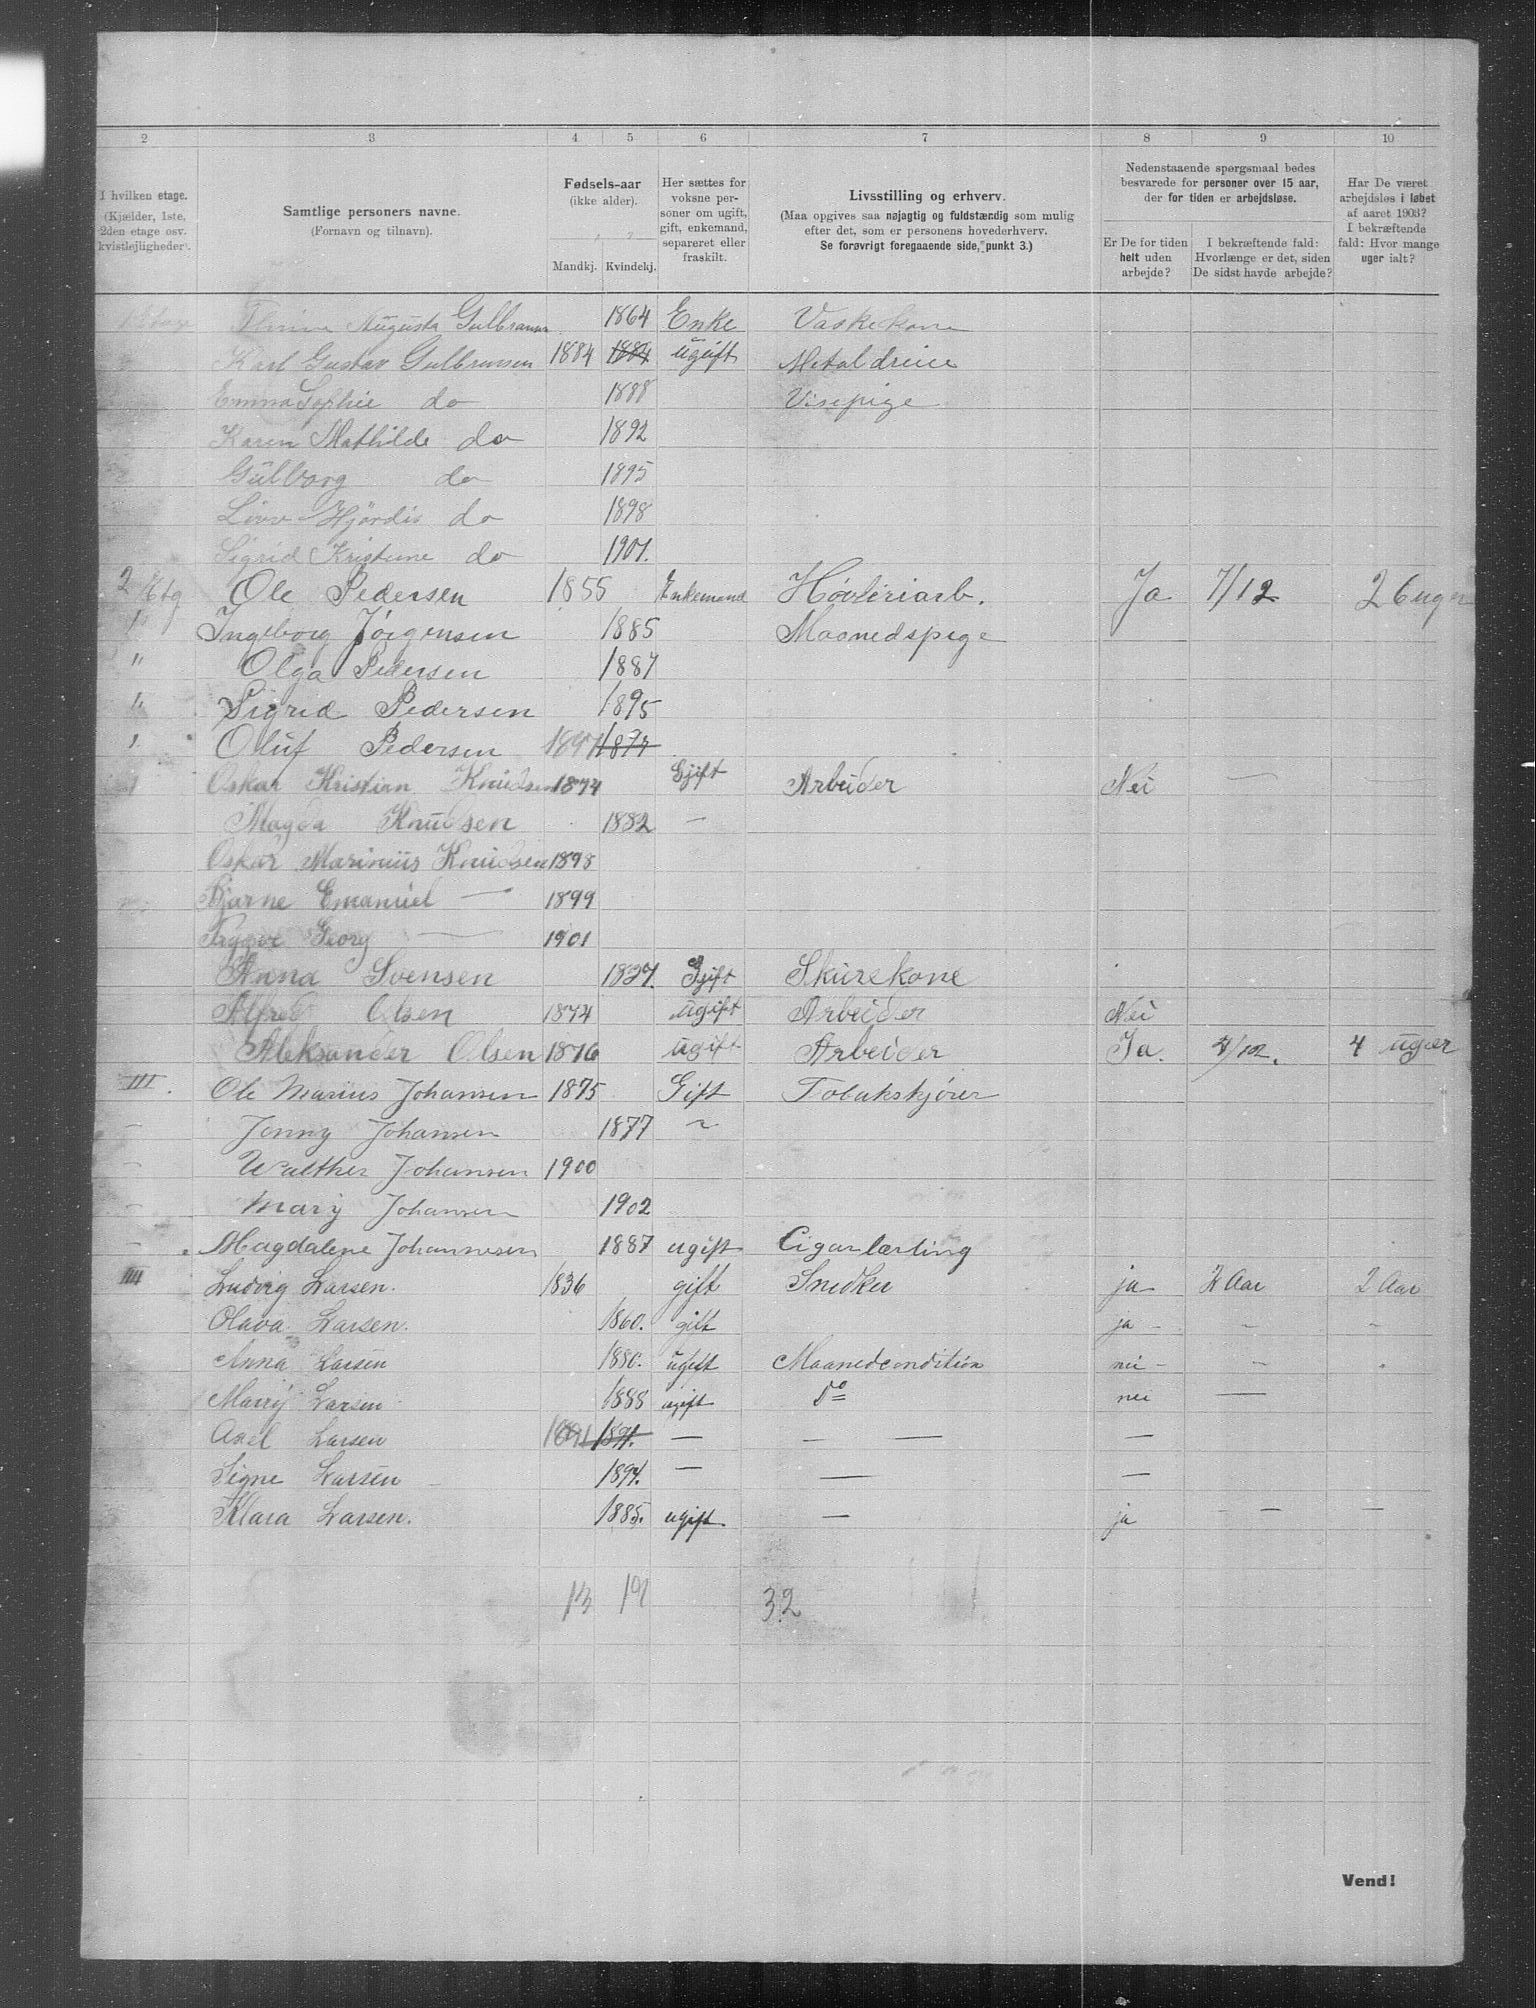 2 3 4 5 6 7 8 9 10
I hvilken etage. (Kjælder, 1ste, 2den etage osv. kvistlejligheder).
Samtlige personers navne. (Fornavn og tilnavn).
Fødsels-aar (ikke alder). Mandkj. Kvindekj.
Her sættes for voksne personer om ugift, gift, enkemand, separeret eller fraskilt.
Livsstilling og erhverv. (Maa opgives saa nøjagtig og fuldstændig som mulig efter det, som er personens hovederhverv. Se forøvrigt foregaaende side, punkt 3.)
Nedenstaaende spørgsmaal bedes besvarede for personer over 15 aar, der for tiden er arbejdsløse.
Er De for tiden helt uden arbejde?
I bekræftende fald: Hvorlænge er det, siden De sidst havde arbejde?
Har De været arbejdsløs i løbet af aaret 1903? I bekræftende fald: Hvor mange uger ialt?
Augusta Gulbransen 1864 Enke Vaskekone
Karl Gustav Gulbransen 1884 1884 ugift Metaldreier
Emma Sophie do 1888 Visepige
Karen Mathilde do 1892
Gülborg do 1895
Hjördis do 1898
Sigrid Kristine do 1901.
2 Etg Ole Pedersen 1855 Enkemand Høvleriarb. Ja 7/12 26 uger
" Ingeborg Jørgensen 1885 Maanedspige
" Olga Pedersen 1887
" Sigrid Pedersen 1895
" Oluf Pedersen 1897 1897
Oskar Kristian Knudsen 1874 Gjift Arbeider Nei —
Magda Knudsen 1882 —
Oskar Marinius Knudsen 1898
Bjarne Emanuel — 1899
Trygve Georg — 1901
Anna Svensen 1837. Gjift Skurekone
Alfred Olsen 1874 ugift Arbeider Nei
Aleksander Olsen 1876 ugift Arbeider Ja. 4/12. 4 uger
III. Ole Marius Johansen 1875 Gift Tobakskjører
– Jenny Johansen 1877 ~
– Walther Johansen 1900
– Mary Johansen 1902
– Magdalene Johannesen 1887 ugift Cigarlærling
IIII Ludvig Larsen. 1836 gift Snedker ja 2 Aar 2 Aar
Olava Larsen. 1860. gift ja – – –
Anna Larsen 1880. ugift Maanedcondition nei – –
Marij Larsen 1888 ugift Do nei —
Axel Larsen 1891 1891. — — — —
Signe Larsen 1894. — — —
Klara Larsen. 1885. ugift. — ja – – —
13 19 32
Vend!